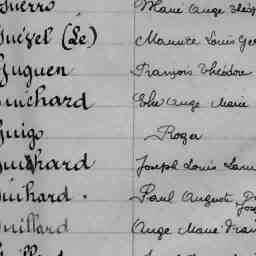 Guerro Marie Ange
Guézel (Le) Maurice Louis
Guguen François Théodore
Guichard Elie Ange Marie
Guigo Roger
Guichard Joseph Louis
Guihard. Paul August
Guillard Ange Marie